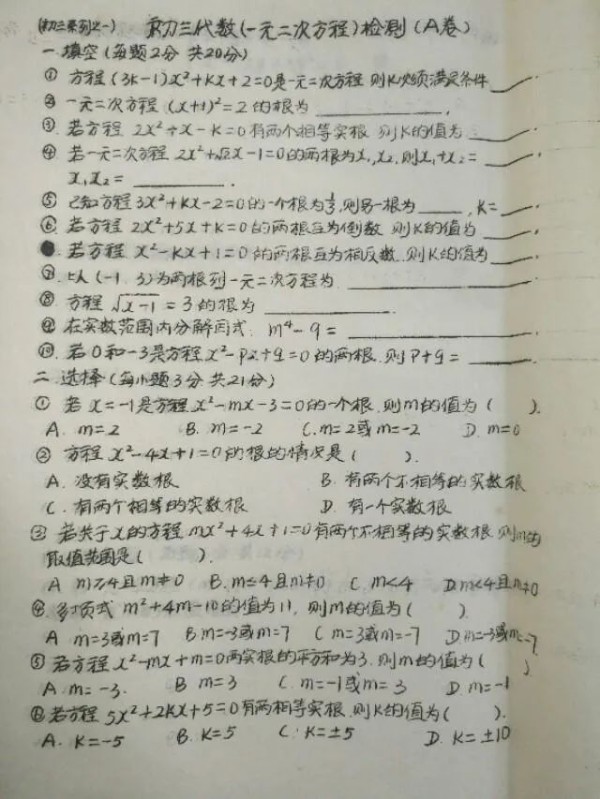 (初三系列之一) 初三代数(一元二次方程)检测(A卷)
一.填空(每题2分 共20分)
① 方程(3K-1)x²+Kx+2=0是一元二次方程 则K必须满足条件
② 一元二次方程 (x+1)²=2的根为
③ 若方程 2x²+x-K=0有两个相等实根 则K的值为
④ 若一元二次方程 2x²+√2x-1=0的两根为x₁,x₂,则x₁+x₂=
x₁x₂=
⑤ 已知方程3x²+Kx-2=0的一个根为⅓,则另一根为 ,K=
⑥ 若方程 2x²+5x+K=0的两根互为倒数 则K的值为
若方程 x²-Kx+1=0的两根互为相反数.则K的值为
⑦.以(-1 3)为两根列一元二次方程为
⑧ 方程 √x-1 =3的根为
⑨ 在实数范围内分解因式. m⁴-9=
⑩.若0和-3是方程x²-Px+q=0的两根.则P+q=
二.选择(每小题3分 共21分)
① 若 x=-1是方程x²-mx-3=0的一个根.则m的值为( ).
A. m=2 B. m=-2 C. m=2或m=-2 D. m=0
② 方程 x²-4x+1=0的根的情况是( ).
A. 没有实数根 B. 有两个不相等的实数根
C. 有两个相等的实数根 D. 有一个实数根
③ 若关于x的方程mx²+4x+1=0有两个不相等的实数根 则m的
取值范围是( ).
A m≥4且m≠0 B. m≤4且m≠0 C m<4 D m<4且m≠0
④.多项式 m²+4m-10的值为11, 则m的值为( ).
A m=3或m=7 B m=-3或m=7 C m=3或m=-7 D m=-3或m=-7
⑤ 若方程x²-mx+m=0两实根的平方和为3.则m的值为( )
A. m=-3. B m=3 C. m=-1或m=3 D. m=-1
⑥ 若方程 5x²+2Kx+5=0有两相等实根.则K的值为( ).
A. K=-5 B. K=5 C. K=±5 D. K=±10